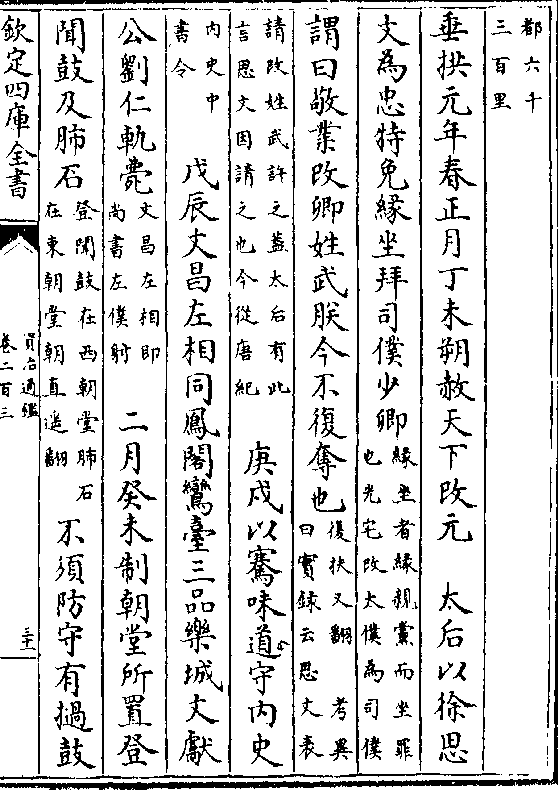 都六千
三百里
垂拱元年春正月丁未朔赦天下改元　太后以徐思
文為忠特免緣坐拜司僕少卿緣坐者緣親黨而坐罪
也光宅改太僕為司僕
謂曰敬業改卿姓武朕今不復奪也復扶又翻　考異
曰實錄云思文表
請改姓武許之蓋太后有此
言思文因請之也今從唐紀
庚戌以騫味道守內史
內史中
書令
戊辰文昌左相同鳳閣鸞臺三品樂城文獻
公劉仁軌薨文昌左相即
尚書左僕射
二月癸未制朝堂所置登
聞鼓及肺石登聞鼓在西朝堂肺石
在東朝堂朝直遥翻
不須防守有撾鼓
欽定四庫全書
資治通鑑
卷二百三
三十二